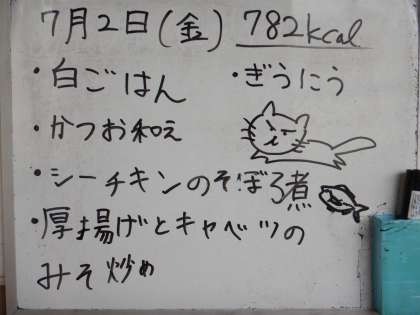 7月2日(金) 782kcal
・白ごはん ・ぎうにう
・かつお和え
・シーチキンのそぼろ煮
・厚揚げとキャベツの
みそ炒め